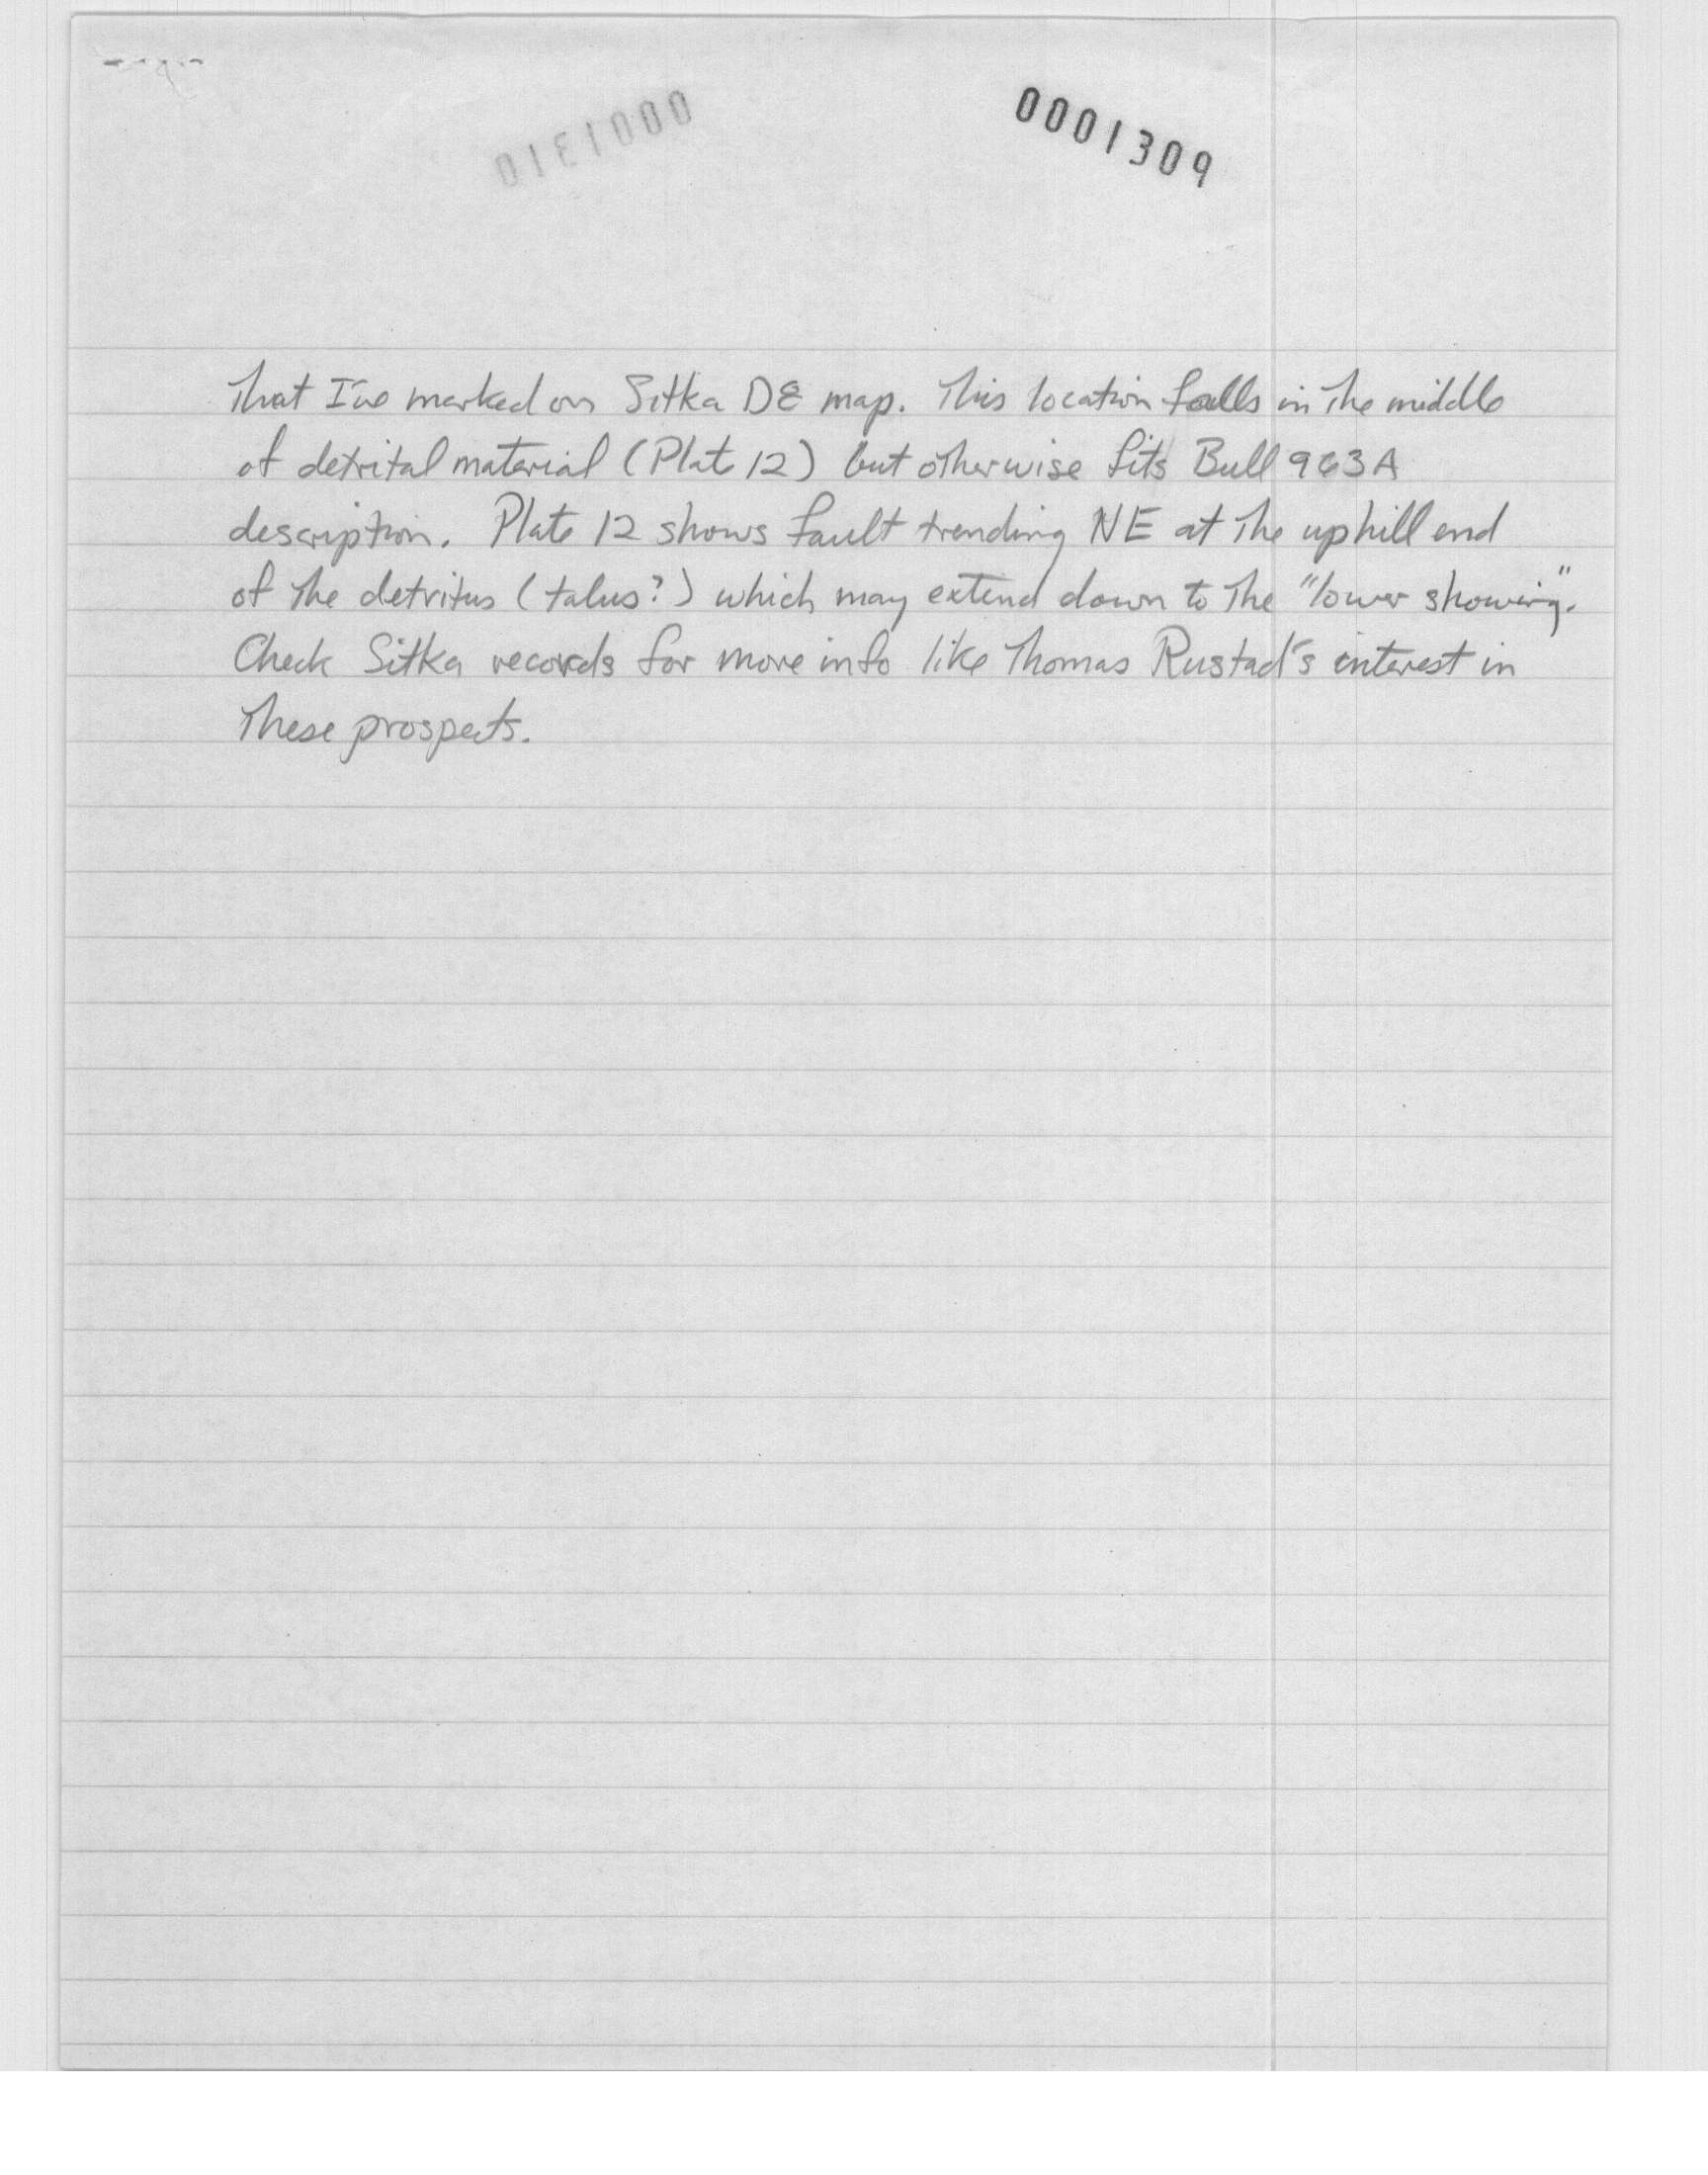 0001309
0001310
That I've marked on Sitka D8 map. This location falls in the middle
of detrital material (Plate 12) but otherwise fits Bull 963A
description. Plate 12 shows fault trending NE at the uphill end
of the detritus (talus?) which may extend down to the "lower showing".
Check Sitka records for more info like Thomas Rustad's interest in
These prospects.